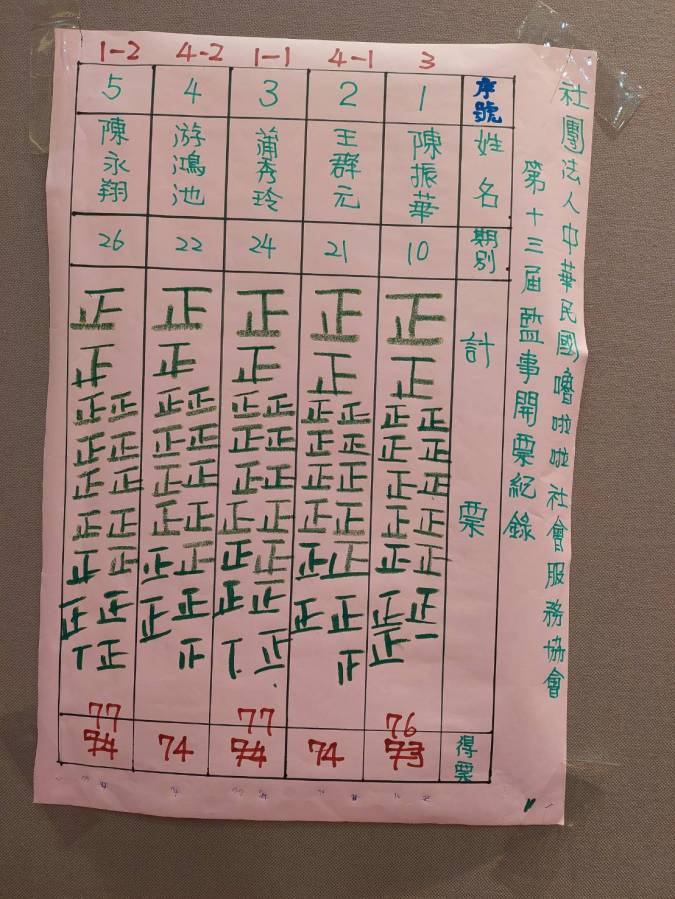 社團法人中華民國嚕啦啦社會服務協會
第十三屆監事開票紀錄
1-2 4-2 1-1 4-1 3
5 4 3 2 1 序號
陳永翔 游鴻池 蒲秀玲 王群元 陳振華 姓名
26 22 24 21 10 期別
計票
正 正 正 正 正
正 正 正 正 正
正正 正正 正正 正正 正正
正正 正正 正正 正正 正正
正正 正正 正正 正正 正正
正正 正正 正正 正正 正正
正正 正正 正正 正正 正正
正正 正正 正正 正正 正正
正 正 正
77 77 76
74 74 74 74 73 得票